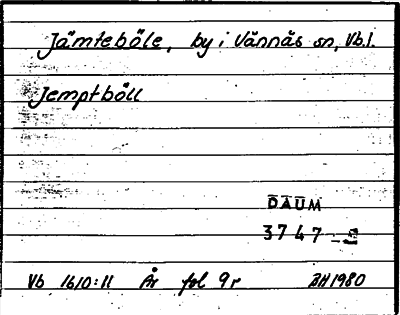 Jämteböle, by i Vännäs sn, Vb.l.
Jemptböll
DAUM
3747
Vb 1610:11 År fol 9r BH1980